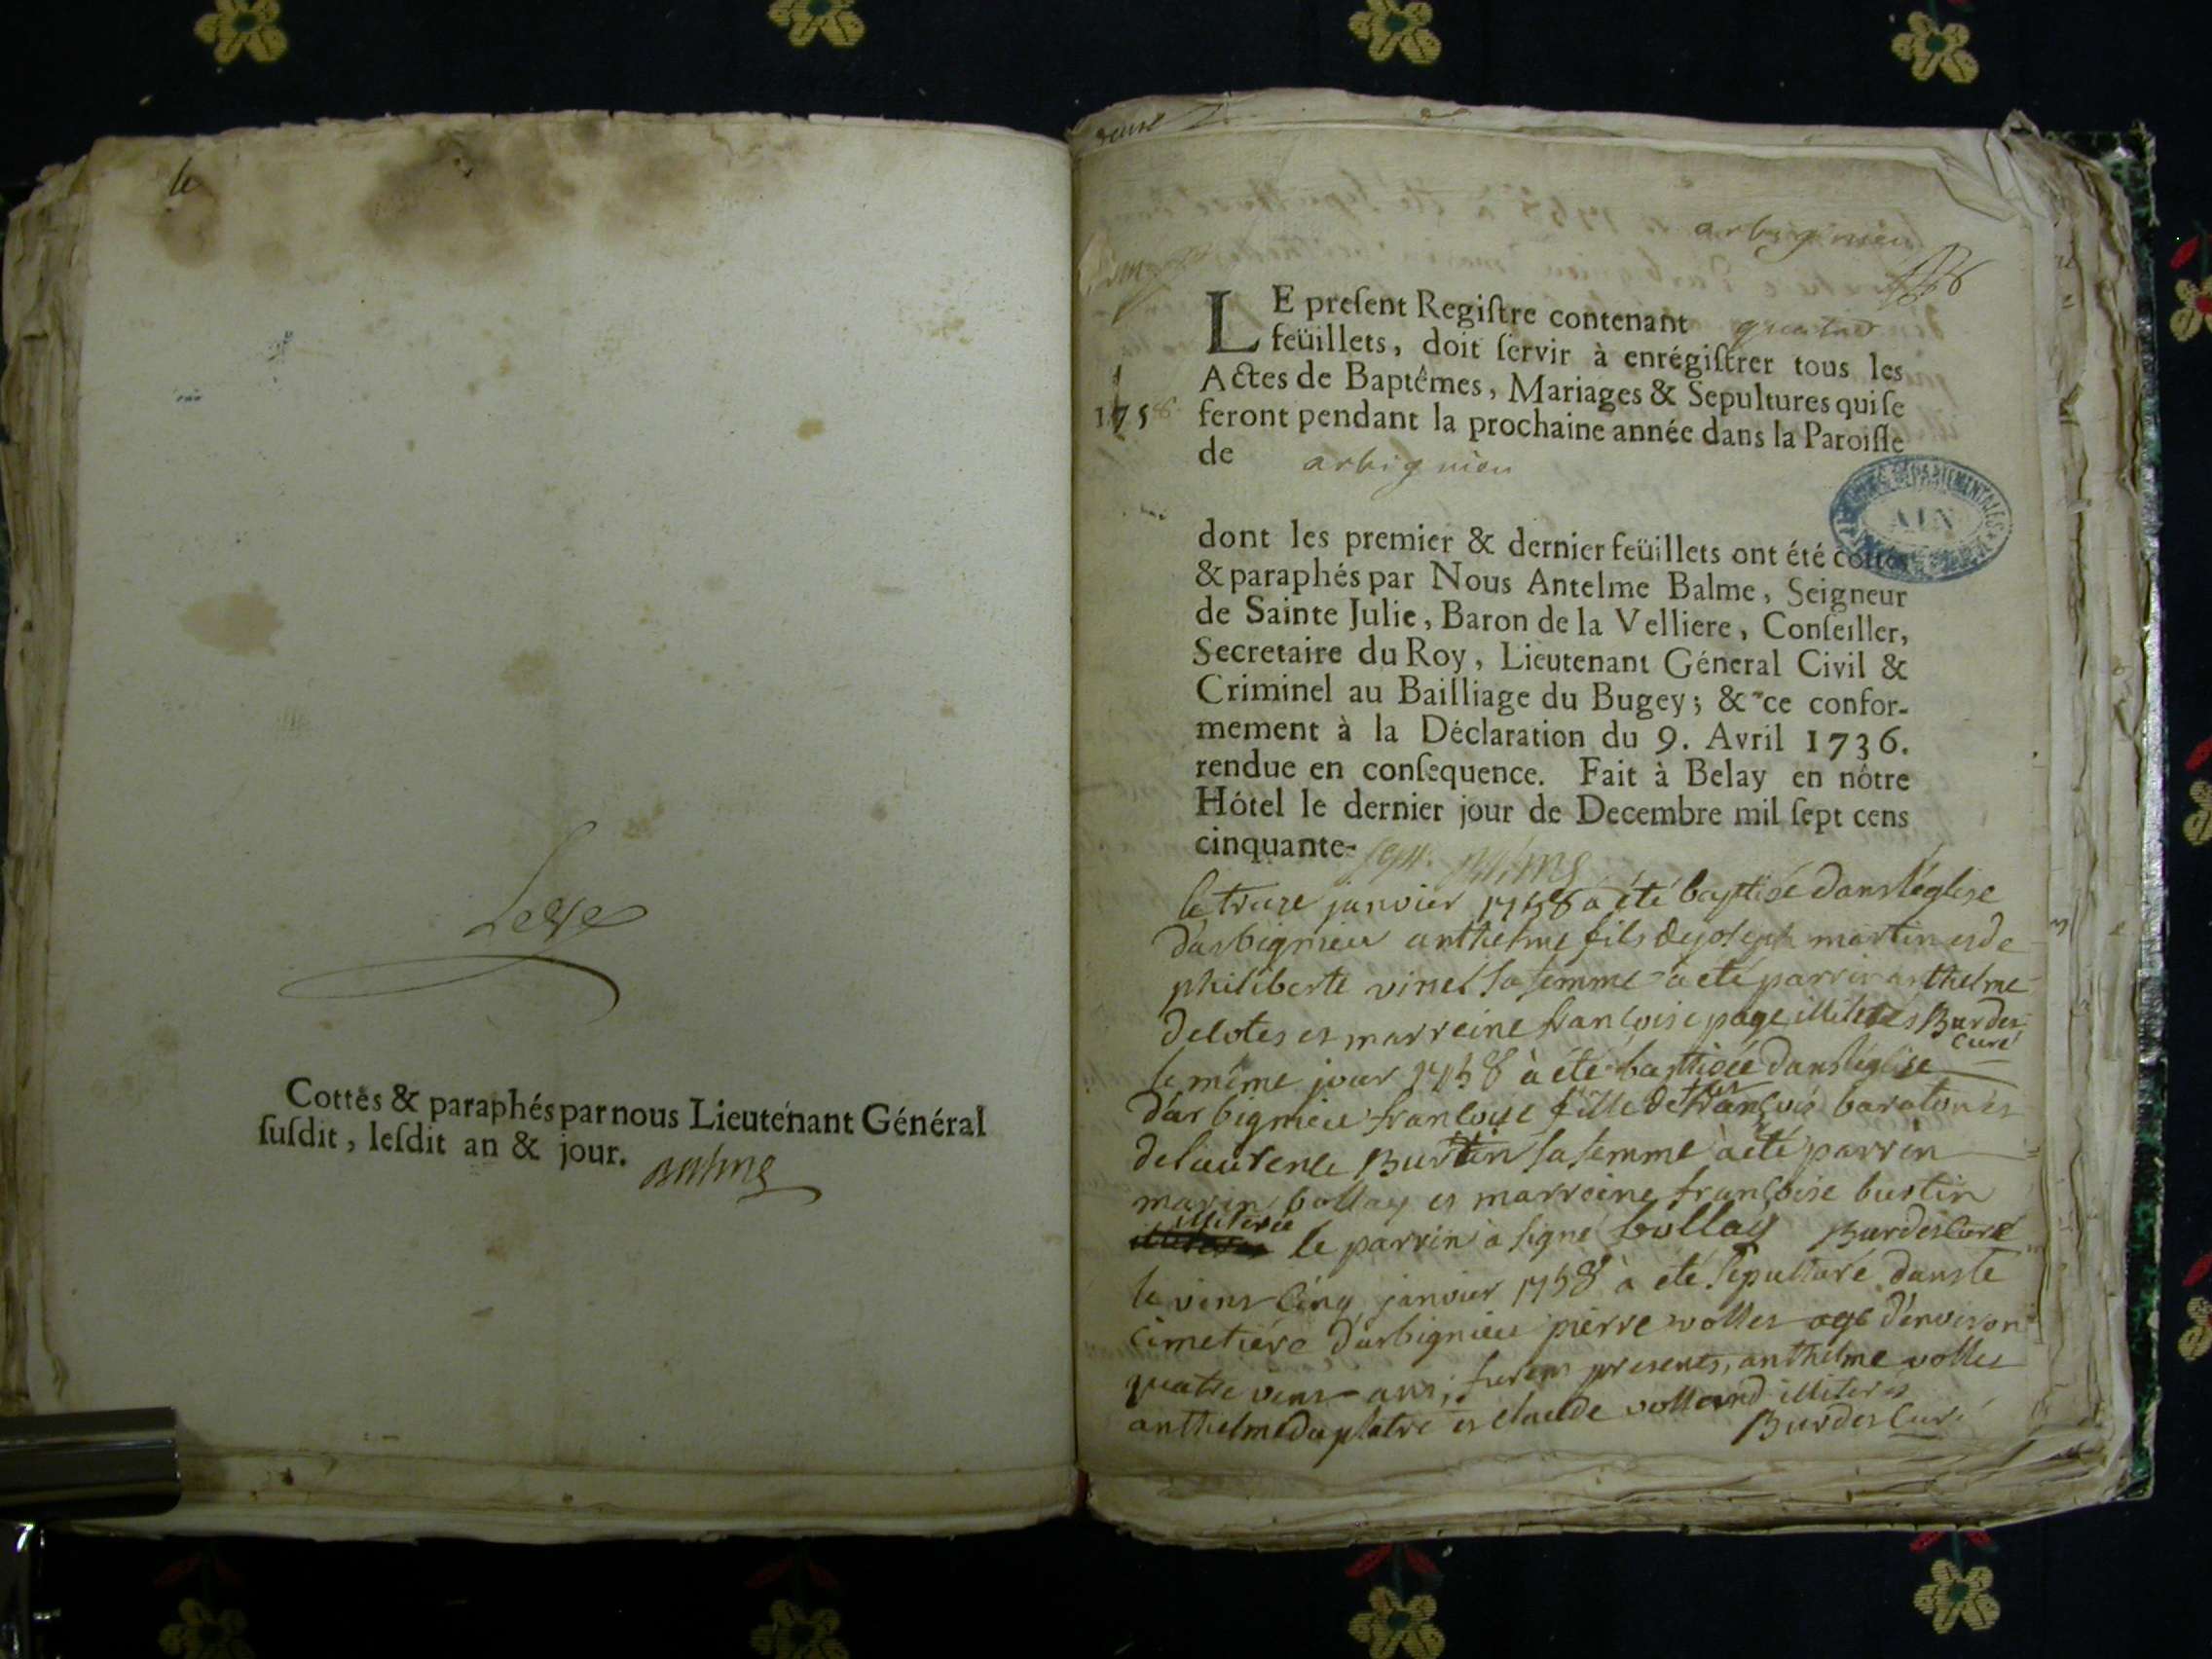 Cottés & paraphés par nous Lieutenant Général
ſuſdit, leſdit an & jour.
Balme
arbignieu
LE preſent Regiſtre contenant quatre
feüillets, doit ſervir à enrégiſtrer tous les
Actes de Baptêmes, Mariages & Sepultures qui ſe
1758
feront pendant la prochaine année dans la Paroiſſe
de arbignieu
ARCHIVES DÉPARTEMENTALES
AIN
dont les premier & dernier feüillets ont été cottés
& paraphés par Nous Antelme Balme, Seigneur
de Sainte Julie, Baron de la Velliere, Conſeiller,
Secretaire du Roy, Lieutenant Géneral Civil &
Criminel au Bailliage du Bugey; & ce confor-
mement à la Déclaration du 9. Avril 1736.
rendue en conſequence. Fait à Belay en nôtre
Hôtel le dernier jour de Decembre mil ſept cens
cinquante-sept. Balme
le treize janvier 1758 a été baptisé dans l'église
d'arbignieu anthelme fils de joseph martin et de
philiberte vinet sa femme a eté parrin anthelme
delotes et marreine françoise page illiterés Burdet
curé
le même jour 1758 à été baptisée dans l'eglise
d'arbignieu françoise fille de françois baraton et
de laurence Burtin sa femme à eté parrin
marin bollay et marreine françoise burtin
illiterée
le parrin à signé bollay Burdet Curé
le vint cinq janvier 1758 à eté sepulturé dans le
cimetiére d'arbignieu pierre vollet agé d'environ
quatre vint ans; furent presents, anthelme vollet
anthelme duplatre et claude volland illiterés
Burdet Curé